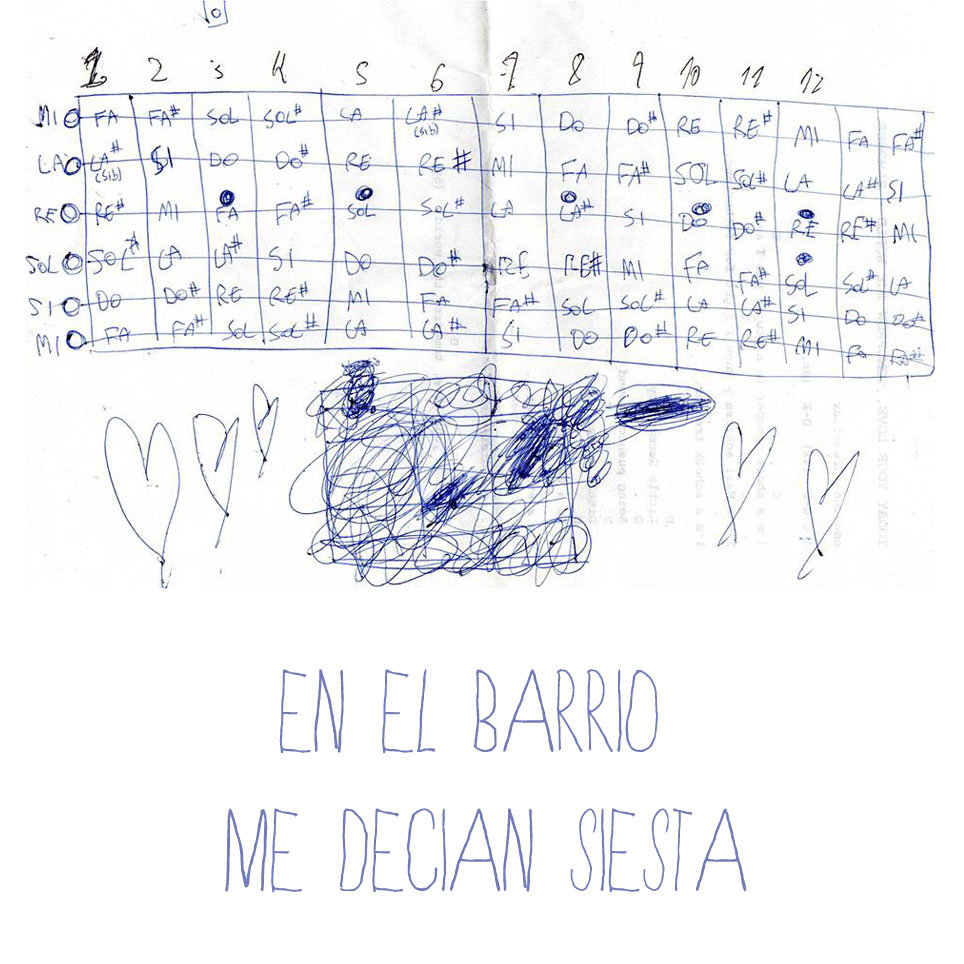 1 2 3 4 5 6 7 8 9 10 11 12
MI FA FA# SOL SOL# LA LA# (SIb) SI DO DO# RE RE# MI FA FA#
LA LA# (SIb) SI DO DO# RE RE# MI FA FA# SOL SOL# LA LA# SI
RE RE# MI FA FA# SOL SOL# LA LA# SI DO DO# RE RE# MI
SOL SOL# LA LA# SI DO DO# RE RE# MI FA FA# SOL SOL# LA
SI DO DO# RE RE# MI FA FA# SOL SOL# LA LA# SI DO DO#
MI FA FA# SOL SOL# LA LA# SI DO DO# RE RE# MI FA FA#
EN EL BARRIO
ME DECIAN SIESTA